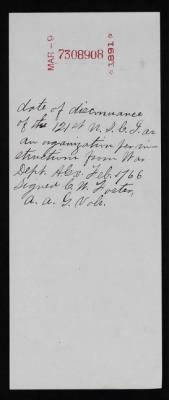 MAR - 9
7308908
1891
date of discontinuance
of the 121st U.S.C.I. as
an organization per in
structions from War
Dept. Feb. 5/66
Signed C. W. Foster,
A. A. G. Vols.